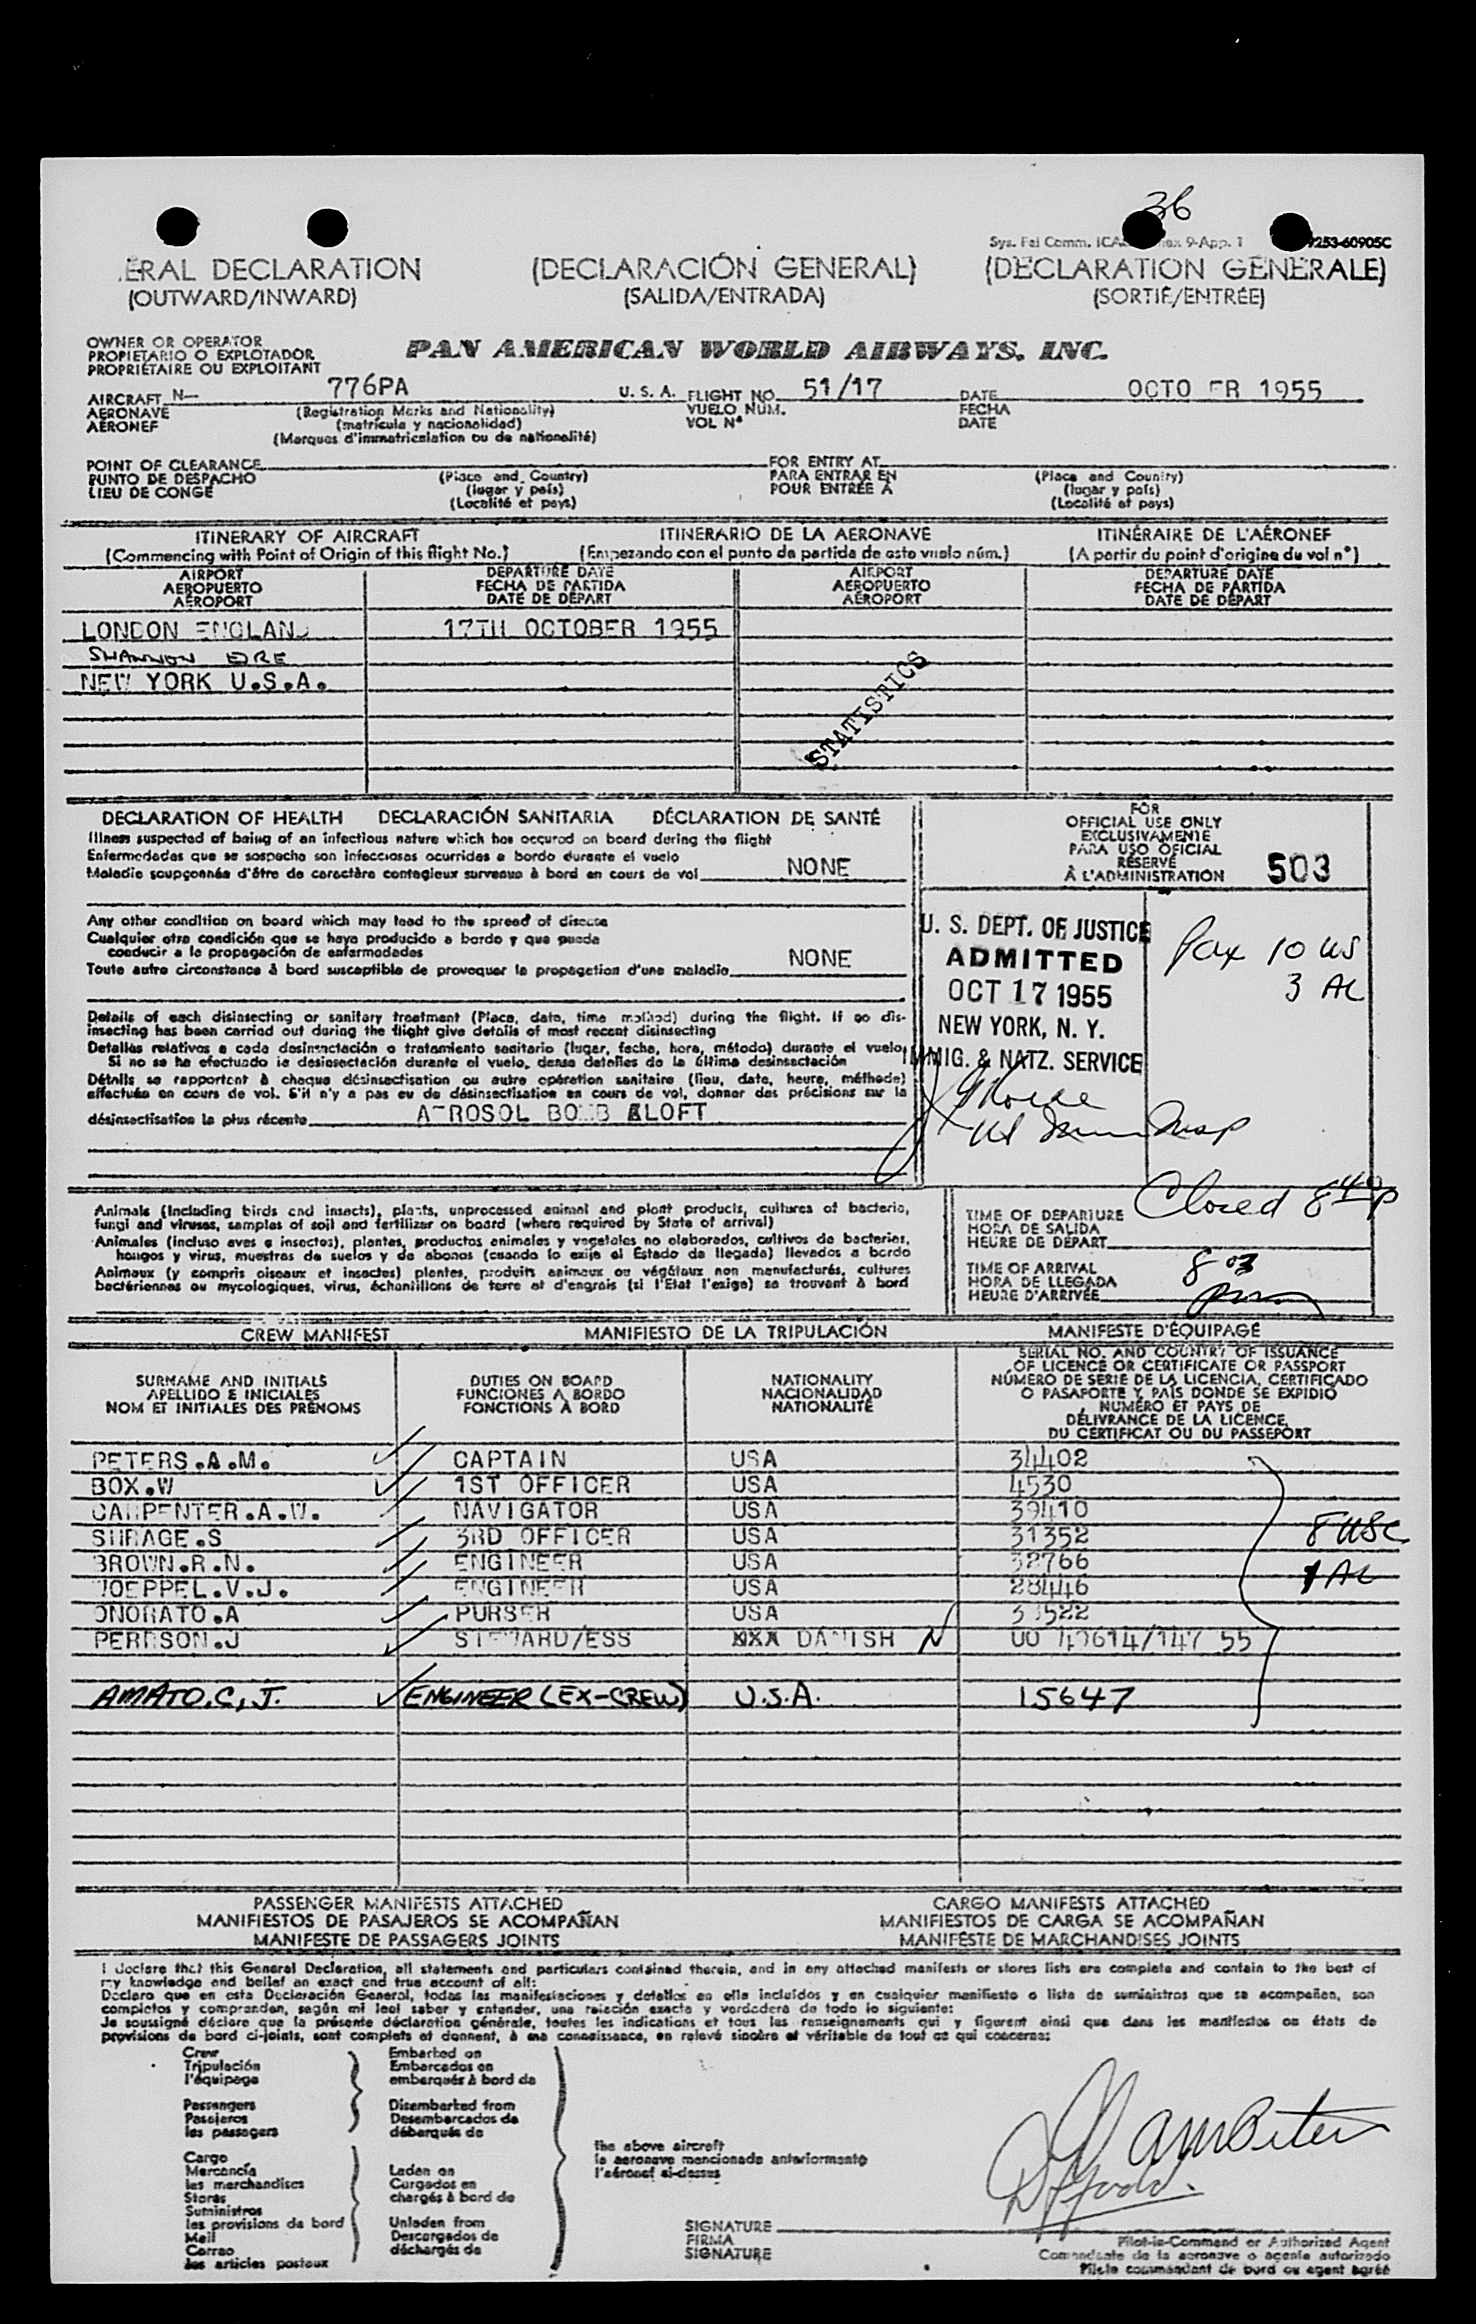 36
Sys. Fal Comm. ICA ex 9-App. 1 9253-60905C
ERAL DECLARATION (DECLARACIÓN GENERAL) (DÉCLARATION GÉNÉRALE)
(OUTWARD/INWARD) (SALIDA/ENTRADA) (SORTIE/ENTRÉE)
OWNER OR OPERATOR
PROPIETARIO O EXPLOTADOR
PROPRIÉTAIRE OU EXPLOITANT
PAN AMERICAN WORLD AIRWAYS, INC.
AIRCRAFT N— 776PA U. S. A. FLIGHT NO. 51/17 DATE OCTO ER 1955
AERONAVE (Registration Marks and Nationality) VUELO NÚM. FECHA
AÉRONEF (matrícula y nacionalidad) VOL Nº DATE
(Marques d'immatriculation ou de nationalité)
POINT OF CLEARANCE FOR ENTRY AT
PUNTO DE DESPACHO (Place and Country) PARA ENTRAR EN (Place and Country)
LIEU DE CONGÉ (lugar y país) POUR ENTRÉE À (lugar y país)
(Localité et pays) (Localité et pays)
ITINERARY OF AIRCRAFT ITINERARIO DE LA AERONAVE ITINÉRAIRE DE L'AÉRONEF
(Commencing with Point of Origin of this flight No.) (Empezando con el punto de partida de este vuelo núm.) (A partir du point d'origine du vol nº)
AIRPORT DEPARTURE DATE AIRPORT DEPARTURE DATE
AEROPUERTO FECHA DE PARTIDA AEROPUERTO FECHA DE PARTIDA
AÉROPORT DATE DE DÉPART AÉROPORT DATE DE DÉPART
LONDON ENGLAND 17TH OCTOBER 1955
SHANNON EIRE
NEW YORK U.S.A.
STATISTICS
DECLARATION OF HEALTH DECLARACIÓN SANITARIA DÉCLARATION DE SANTÉ
Illness suspected of being of an infectious nature which has occured on board during the flight
Enfermedades que se sospecha son infecciosas ocurridas a bordo durante el vuelo
Maladie soupçonnée d'être de caractère contagieux survenue à bord en cours de vol NONE
Any other condition on board which may lead to the spread of disease
Cualquier otra condición que se haya producido a bordo y que pueda
conducir a la propagación de enfermedades
Toute autre circonstance à bord susceptible de provoquer la propagation d'une maladie NONE
Details of each disinsecting or sanitary treatment (Place, date, time method) during the flight. If no dis-
insecting has been carried out during the flight give details of most recent disinsecting
Detalles relativos a cada desinsectación o tratamiento sanitario (lugar, fecha, hora, método) durante el vuelo.
Si no se ha efectuado la desinsectación durante el vuelo, dense detalles de la última desinsectación
Détails se rapportant à chaque désinsectisation ou autre opération sanitaire (lieu, date, heure, méthode)
effectuée en cours de vol. S'il n'y a pas eu de désinsectisation en cours de vol, donner des précisions sur la
désinsectisation la plus récente AEROSOL BOMB ALOFT
FOR
OFFICIAL USE ONLY
EXCLUSIVAMENTE
PARA USO OFICIAL
RÉSERVÉ
À L'ADMINISTRATION
503
U. S. DEPT. OF JUSTICE
ADMITTED
OCT 17 1955
NEW YORK, N. Y.
IMMIG. & NATZ. SERVICE
Pax 10 US
3 AL
Closed 8 40 p
Animals (Including birds and insects), plants, unprocessed animal and plant products, cultures of bacteria,
fungi and viruses, samples of soil and fertilizer on board (where required by State of arrival)
Animales (incluso aves e insectos), plantas, productos animales y vegetales no elaborados, cultivos de bacterias,
hongos y virus, muestras de suelos y de abonos (cuando lo exija el Estado de llegada) llevados a bordo
Animaux (y compris oiseaux et insectes) plantes, produits animaux ou végétaux non manufacturés, cultures
bactériennes ou mycologiques, virus, échantillons de terre et d'engrais (si l'Etat l'exige) se trouvant à bord
TIME OF DEPARTURE
HORA DE SALIDA
HEURE DE DÉPART
TIME OF ARRIVAL 8 03
HORA DE LLEGADA
HEURE D'ARRIVÉE
CREW MANIFEST MANIFIESTO DE LA TRIPULACIÓN MANIFESTE D'ÉQUIPAGE
SURNAME AND INITIALS
APELLIDO E INICIALES
NOM ET INITIALES DES PRÉNOMS
DUTIES ON BOARD
FUNCIONES A BORDO
FONCTIONS À BORD
NATIONALITY
NACIONALIDAD
NATIONALITÉ
SERIAL NO. AND COUNTRY OF ISSUANCE
OF LICENCE OR CERTIFICATE OR PASSPORT
NÚMERO DE SERIE DE LA LICENCIA, CERTIFICADO
O PASAPORTE Y PAÍS DONDE SE EXPIDIÓ
NUMÉRO ET PAYS DE
DÉLIVRANCE DE LA LICENCE,
DU CERTIFICAT OU DU PASSEPORT
PETERS.A.M. CAPTAIN USA 34402
BOX.W 1ST OFFICER USA 4530
CARPENTER.A.W. NAVIGATOR USA 39410
SURAGE.S 3RD OFFICER USA 31352 8 USC
BROWN.R.N. ENGINEER USA 32766
WOEPPEL.V.J. ENGINEER USA 28446 1 AL
ONORATO.A PURSER USA
PERRSON.J STEWARD/ESS XXX DANISH
AMATO.C,J. ENGINEER (EX-CREW) U.S.A. 15647
PASSENGER MANIFESTS ATTACHED CARGO MANIFESTS ATTACHED
MANIFIESTOS DE PASAJEROS SE ACOMPAÑAN MANIFIESTOS DE CARGA SE ACOMPAÑAN
MANIFESTE DE PASSAGERS JOINTS MANIFESTE DE MARCHANDISES JOINTS
I declare that this General Declaration, all statements and particulars contained therein, and in any attached manifests or stores lists are complete and contain to the best of
my knowledge and belief an exact and true account of all:
Declaro que en esta Declaración General, todas las manifestaciones y detalles en ella incluídos y en cualquier manifiesto o lista de suministros que se acompañen, son
completos y comprenden, según mi leal saber y entender, una relación exacta y verdadera de todo lo siguiente:
Je soussigné déclare que la présente déclaration générale, toutes les indications et tous les renseignements qui y figurent ainsi que dans les manifestes ou états de
provisions de bord ci-joints, sont complets et donnent, à ma connaissance, un relevé sincère et véritable de tout ce qui concerne:
Crew Embarked on
Tripulación Embarcados en
l'équipage embarqués à bord de
Passengers Disembarked from
Pasajeros Desembarcados de
les passagers débarqués de
the above aircraft
la aeronave mencionada anteriormente
l'aéronef ci-dessus
Cargo
Mercancía Laden on
les marchandises Cargados en
Stores chargés à bord de
Suministros
les provisions de bord Unladen from
Mail Descargados de
Correo déchargés de
les articles postaux
SIGNATURE
FIRMA
SIGNATURE
Pilot-in-Command or Authorized Agent
Comandante de la aeronave o agente autorizado
Pilote commandant de bord ou agent agréé